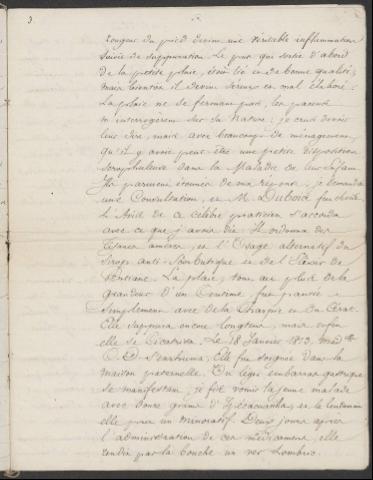 3
rougeur du pied devint une véritable inflammation
suivie de suppuration. Le pus qui sortit d'abord
de la petite plaie, était lié et de bonne qualité;
mais bientôt il devint séreux et mal élaboré.
La plaie ne se fermant pas, les parents
m'interrogèrent sur sa Nature: je crus devoir
leur dire, mais avec beaucoup de ménagement,
qu'il y avait peut être une petite disposition
scrophuleuse dans la Maladie de leur Enfant.
Ils parurent étonnés de ma réponse; je demandai
une Consultation, et M. Dubois fut choisi.
L'Avis de ce célèbre praticien s'accorda
avec ce que j'avais dit. Il ordonna des
Tisanes amères, et l'Usage alternatif du
Sirop anti-Scorbutique et de l'Elixir de
. La plaie, tout au plus de la
grandeur d'un Centime, fut pansée
simplement avec de la Charpie et du Cérat.
Elle suppura encore longtems, mais enfin
elle se Cicatrisa. Le 18 Janvier 1813, Melle
O. D. s'enrhuma; Elle fut soignée dans la
maison paternelle. Un léger embarras gastrique
se manifestant, je fis vomir la jeune malade
avec douze grains d'Ipécacuanha, et le lendemain
elle prit un minoratif. Deux jours après
l'administration de ces médicaments, elle
rendit par la bouche un ver Lombric.